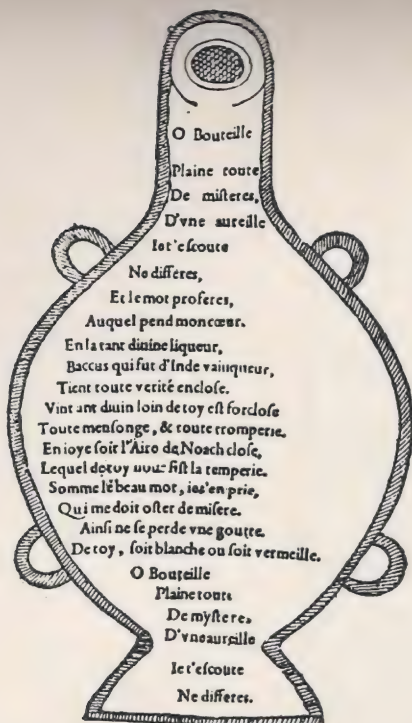 O Bouteille
Plaine toute
De miſteres,
D'vne aureille
Iet'eſcoute
Ne differes,
Et le mot proferes,
Auquel pend moncœur.
En la tant diuine liqueur,
Baccus qui fut d'Inde vainqueur,
Tient toute verité encloſe.
Vint ant diuin loin de toy eſt forcloſe
Toute menſonge, & toute tromperie.
En ioye ſoit l'Airo de Noach cloſe,
Lequel de toy nous fiſt la temperie.
Somme lê beau mot, ie t'en prie,
Qui me doit oſter de miſere.
Ainſi ne ſe perde vne goutte.
De toy, ſoit blanche ou ſoit vermeille.
O Bouteille
Plaine toute
De myſteres,
D'vne aureille
Ie t'eſcoute
Ne differes.